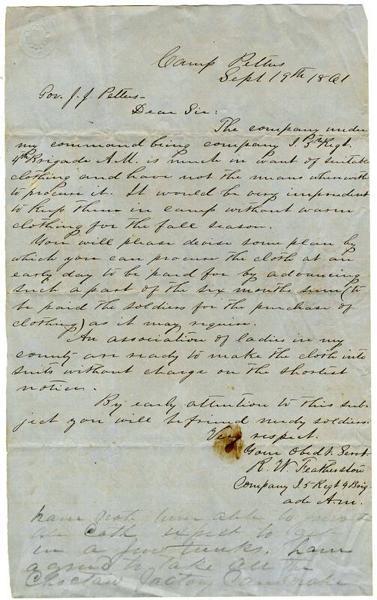 Camp Pettus
Sept 19th 1861
Gov. J. J. Pettus-
Dear Sir:
The company under
my command being company I 5th Regt.
4th Brigade A.M. is much in want of suitable
clothing and have not the means wherewith
to procure it. It would be very imprudent
to keep them in camp without warm
clothing for the fall season.
You will please devise some plan by
which you can procure the cloth at an
early day to be paid for by advancing
such a part of the six months sum (to
be paid the soldiers for the purchase of
clothing) as it may require.
An association of ladies in my
county are ready to make the cloth into
suits without charge on the shortest
notice.
By early attention to this sub-
ject you will befriend needy soldiers.
Very respect.
Your Obed't. Servt
R. W Featherston
Company I 5 Regt 4 Brig
ade A.M.
have not been able to
the cloth expect to get
in a few weeks. have
agreed to take all the
Choctaw factory can make